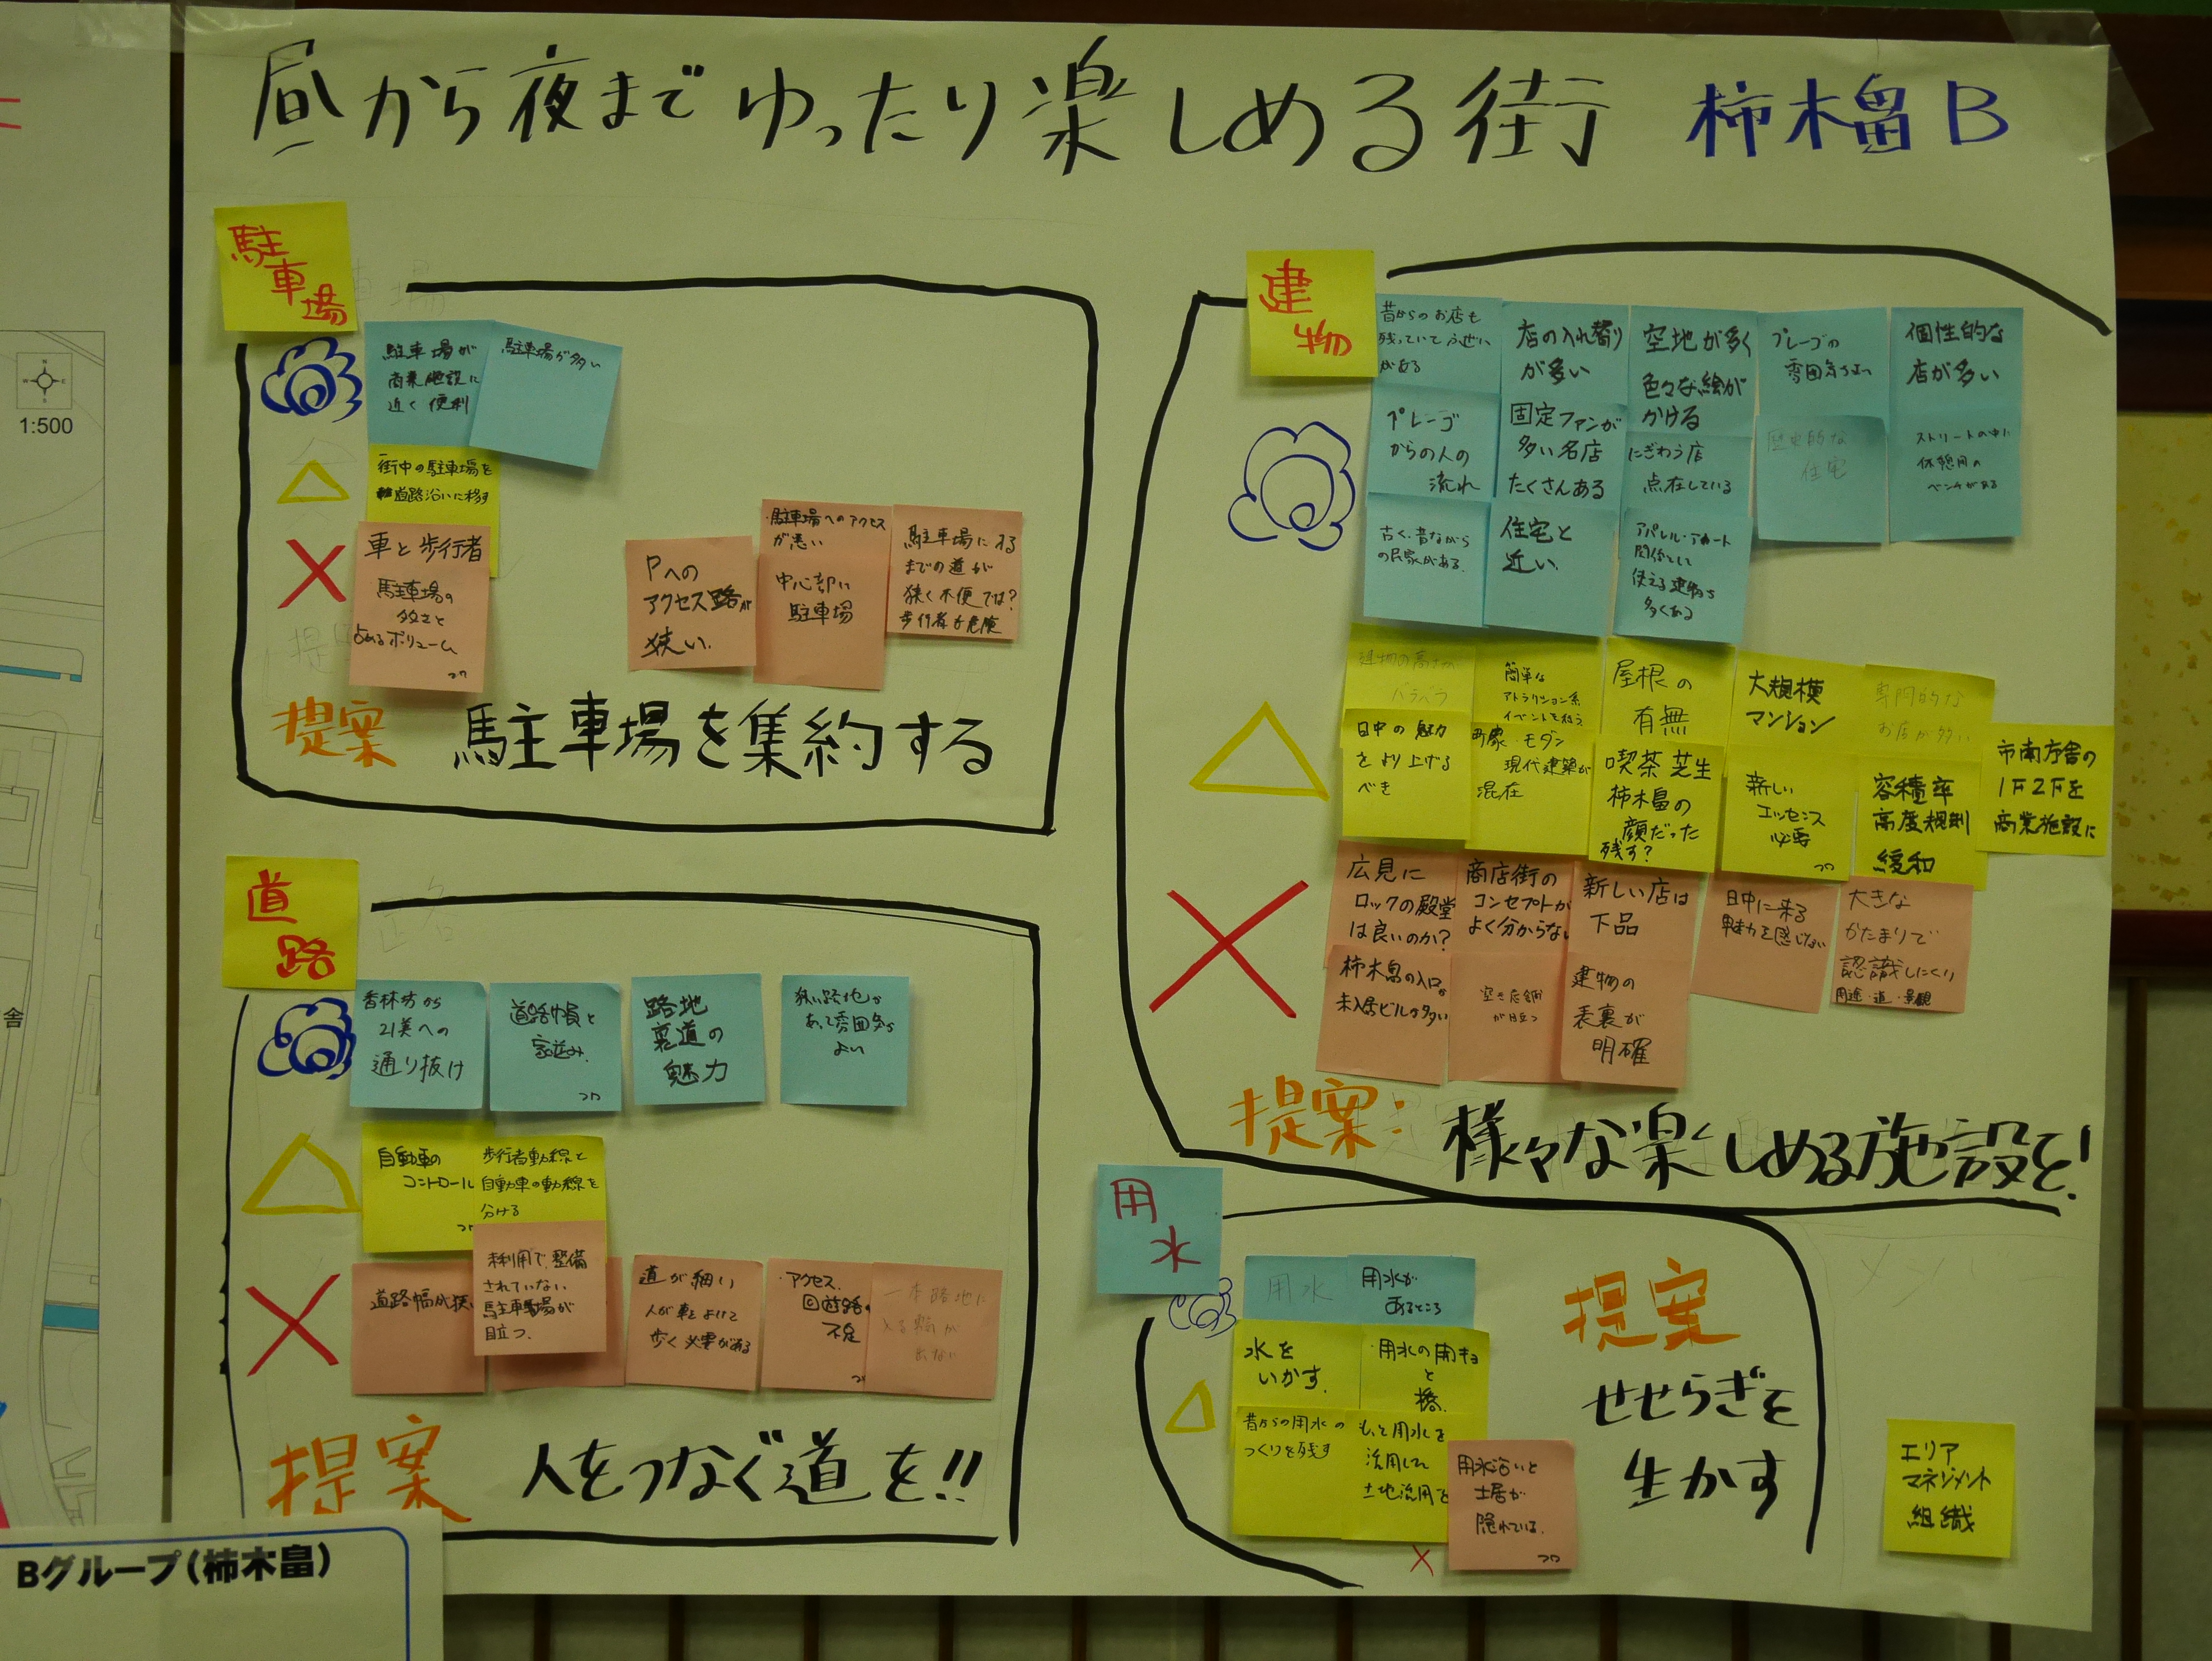 昼から夜までゆったり楽しめる街 柿木畠B
駐
車
場
駐車場が
商業施設に
近く便利
駐車場が多い
街中の駐車場を
道路沿いに移す
車と歩行者
駐車場の
多さと
占めるボリューム
Pへの
アクセス路が
狭い.
・駐車場へのアクセス
が悪い
中心部に
駐車場
駐車場に入る
までの道が
狭く不便では?
歩行者も危険
提案 駐車場を集約する
道
路
香林坊から
21美への
通り抜け
道路幅員と
家並み.
路地
裏道の
魅力
狭い路地が
あって雰囲気が
よい
自動車の
コントロール
歩行者動線と
自動車の動線を
分ける
道路幅が狭い
未利用で整備
されていない
駐車場が
目立つ.
道が細い
人が車をよけて
歩く必要がある
・アクセス.
回遊路の
不足
一本路地に
入る
提案 人をつなぐ道を!!
建
物
昔からのお店も
残っていて
がある
店の入れ替り
が多い
空地が多く
色々な絵が
かける
プレーゴの
雰囲気がよい
個性的な
店が多い
プレーゴ
からの人の
流れ
固定ファンが
多い名店
たくさんある
にぎわう店
点在している
歴史的な
住宅
ストリートの中に
休憩用の
ベンチがある
古く、昔ながら
の民家がある.
住宅と
近い.
アパレル・アート
関係として
使える建物も
多くある
建物の高さが
バラバラ
簡単な
アトラクション系
イベントを行う
屋根の
有無
大規模
マンション
専門的な
お店が多い
日中の魅力
をより上げる
べき
町家・モダン
現代建築が
混在
喫茶 芝生
柿木畠の
顔だった
残す?
新しい
エッセンス
必要
容積率
高度規制
緩和
市南庁舎の
1F2Fを
商業施設に
広見に
ロックの殿堂
は良いのか?
商店街の
コンセプトが
よく分からない
新しい店は
下品
日中に来る
魅力を感じない
大きな
かたまりで
認識しにくい
用途・道・景観
柿木畠の入口に
未入居ビルが多い
空き店舗
が目立つ
建物の
表裏が
明確
提案: 様々な楽しめる施設を!
用
水
用水
用水が
あるところ
水を
いかす.
・用水の開キョ
と
橋.
昔からの用水の
つくりを残す
もっと用水を
活用した
土地活用を
用水沿いと
土居が
隠れている.
提案
せせらぎを
生かす
エリア
マネジメント
組織
1:500
舎
Bグループ(柿木畠)